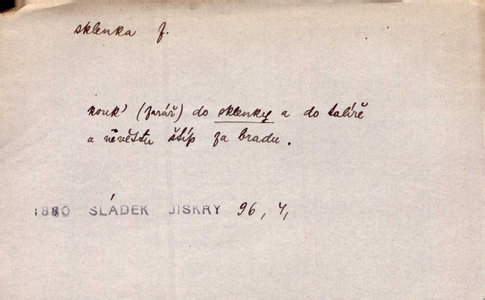 sklenka f.
kouk' (farář) do sklenky a do talíře
a nevěstu štíp za bradu.
1880 SLÁDEK JISKRY 96, 4,